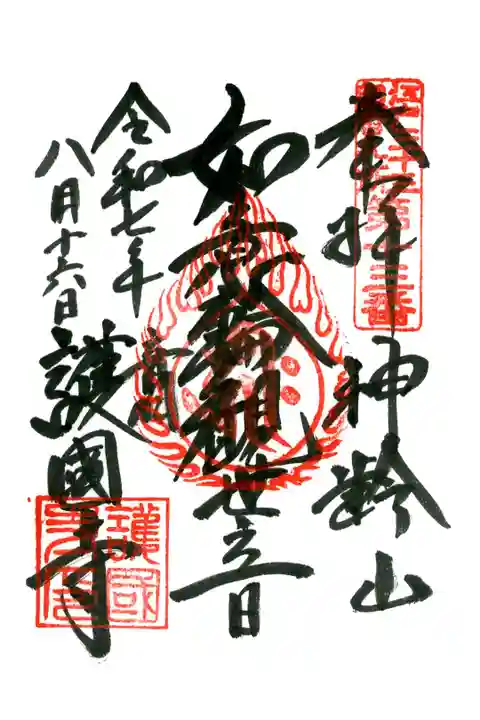 第十三番
奉拝 神齢山
如意輪観世音
令和七年
八月十六日
護國寺
護國